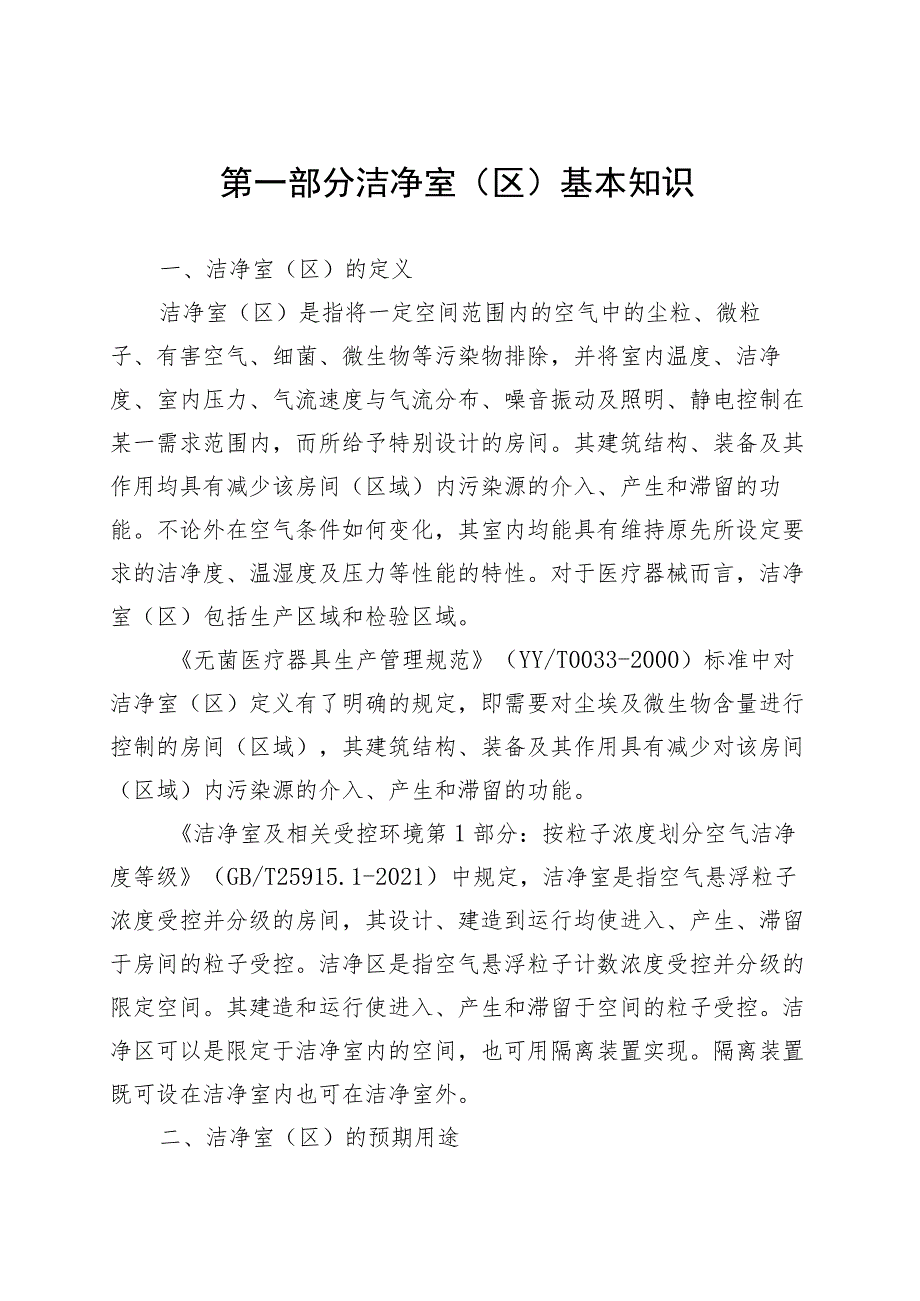 第一部分洁净室（区）基本知识
一、洁净室（区）的定义
洁净室（区）是指将一定空间范围内的空气中的尘粒、微粒
子、有害空气、细菌、微生物等污染物排除，并将室内温度、洁净
度、室内压力、气流速度与气流分布、噪音振动及照明、静电控制在
某一需求范围内，而所给予特别设计的房间。其建筑结构、装备及其
作用均具有减少该房间（区域）内污染源的介入、产生和滞留的功
能。不论外在空气条件如何变化，其室内均能具有维持原先所设定要
求的洁净度、温湿度及压力等性能的特性。对于医疗器械而言，洁净
室（区）包括生产区域和检验区域。
《无菌医疗器具生产管理规范》（YY/T0033-2000）标准中对
洁净室（区）定义有了明确的规定，即需要对尘埃及微生物含量进行
控制的房间（区域），其建筑结构、装备及其作用具有减少对该房间
（区域）内污染源的介入、产生和滞留的功能。
《洁净室及相关受控环境第 1 部分：按粒子浓度划分空气洁净
度等级》（GB/T25915.1-2021）中规定，洁净室是指空气悬浮粒子
浓度受控并分级的房间，其设计、建造到运行均使进入、产生、滞留
于房间的粒子受控。洁净区是指空气悬浮粒子计数浓度受控并分级的
限定空间。其建造和运行使进入、产生和滞留于空间的粒子受控。洁
净区可以是限定于洁净室内的空间，也可用隔离装置实现。隔离装置
既可设在洁净室内也可在洁净室外。
二、洁净室（区）的预期用途